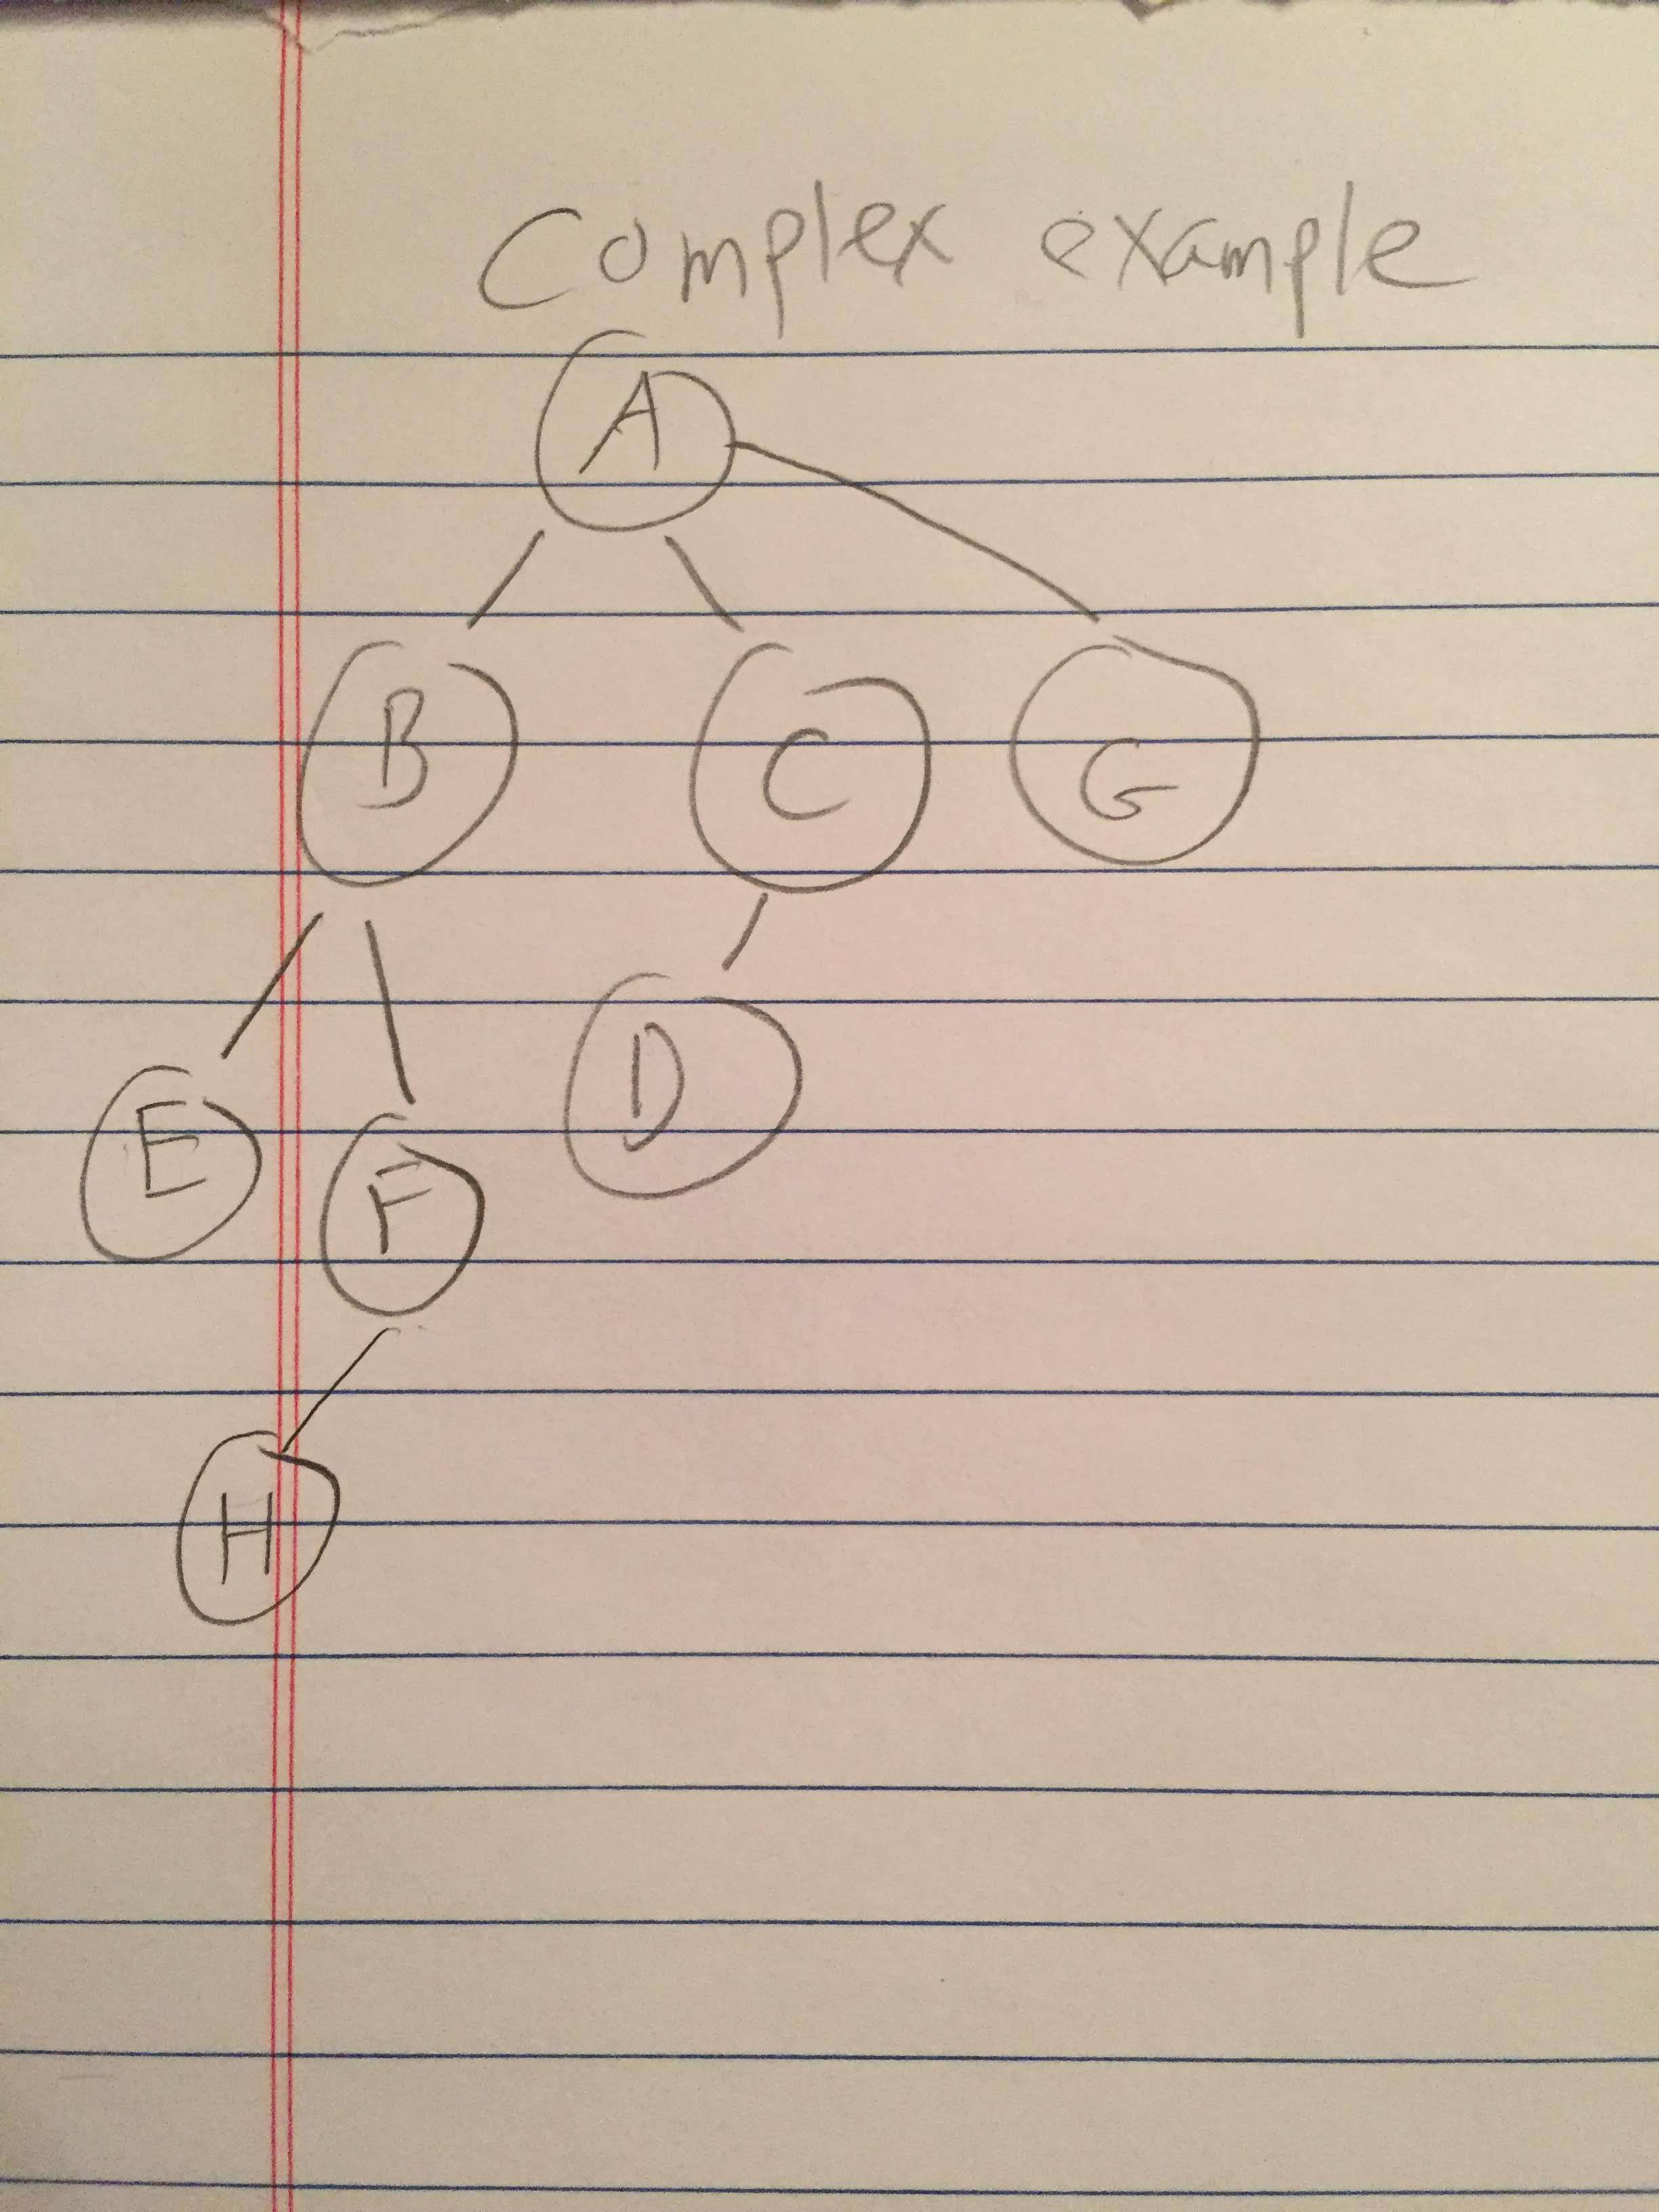 Complex example
A
B C G
E F D
H